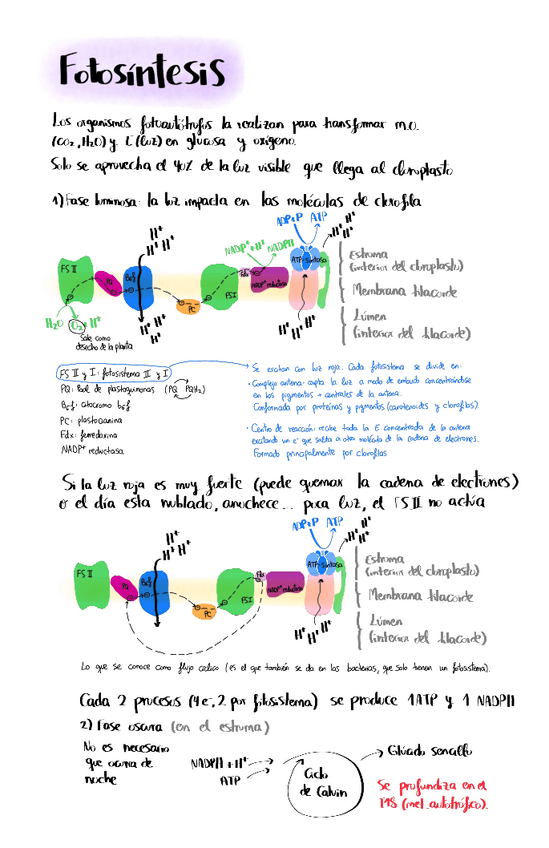 Fotosíntesis
Los organismos fotoautótrofos la realizan para transformar m.o.
(CO₂, H₂O) y E (luz) en glucosa y oxígeno.
Solo se aprovecha el 40% de la luz visible que llega al cloroplasto
1) Fase luminosa: la luz impacta en las moléculas de clorofila
ADP+P ATP
H⁺ H⁺ H⁺
H⁺ H⁺ H⁺
NADP⁺+H⁺ NADPH
FS II
PQ
B₆f
PC
FSI
Fdx
NADP⁺ reductasa
ATP sintasa
Estroma
(interior del cloroplasto)
Membrana tilacoide
Lúmen
(interior del tilacoide)
H₂O O₂ + H⁺
Sale como
desecho de la planta
H⁺ H⁺ H⁺
H⁺ H⁺ H⁺
FS II y I: fotosistema II y I
PQ: Pool de plastoquinonas (PQ PQH₂)
B₆f: citocromo b₆f
PC: plastocianina
Fdx: ferredoxina
NADP⁺ reductasa
Se excitan con luz roja. Cada fotosistema se divide en:
• Complejo antena: capta la luz a modo de embudo concentrándose
en los pigmentos + centrales de la antena.
Conformada por proteínas y pigmentos (carotenoides y clorofilas).
• Centro de reacción: recibe toda la E concentrada de la antena
excitando un e⁻ que salta a otra molécula de la cadena de electrones.
Formado principalmente por clorofilas
Si la luz roja es muy fuerte (puede quemar la cadena de electrones)
o el día esta nublado, anochece... poca luz, el FS II no actúa
ADP+P ATP
H⁺ H⁺ H⁺
H⁺ H⁺ H⁺
FS II
PQ
B₆f
PC
FSI
Fdx
NADP⁺ reductasa
ATP sintasa
Estroma
(interior del cloroplasto)
Membrana tilacoide
Lúmen
(interior del tilacoide)
H⁺ H⁺ H⁺
Lo que se conoce como flujo cíclico (es el que también se da en las bacterias, que solo tienen un fotosistema).
Cada 2 procesos (4e⁻, 2 por fotosistema) se produce 1 ATP y 1 NADPH
2) Fase oscura (en el estroma)
No es necesario
que ocurra de
noche
NADPH + H⁺
ATP
Ciclo
de Calvin
Glúcido sencillo
Se profundiza en el
T18 (met. autotrófico).